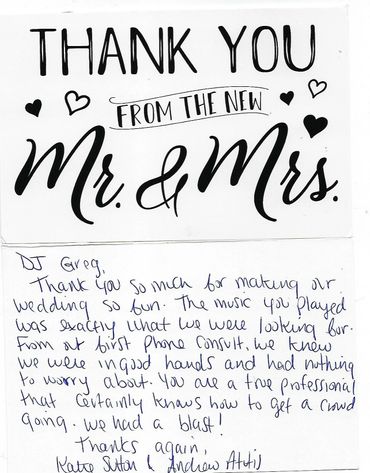 THANK YOU
FROM THE NEW
Mr. & Mrs.
DJ Greg,
Thank you so much for making our
wedding so fun. The music you played
was exactly what we were looking for.
From our first phone consult, we knew
we were in good hands and had nothing
to worry about. You are a true professional
that certainly knows how to get a crowd
going. we had a blast!
Thanks again,
Katie Sutton & Andrew